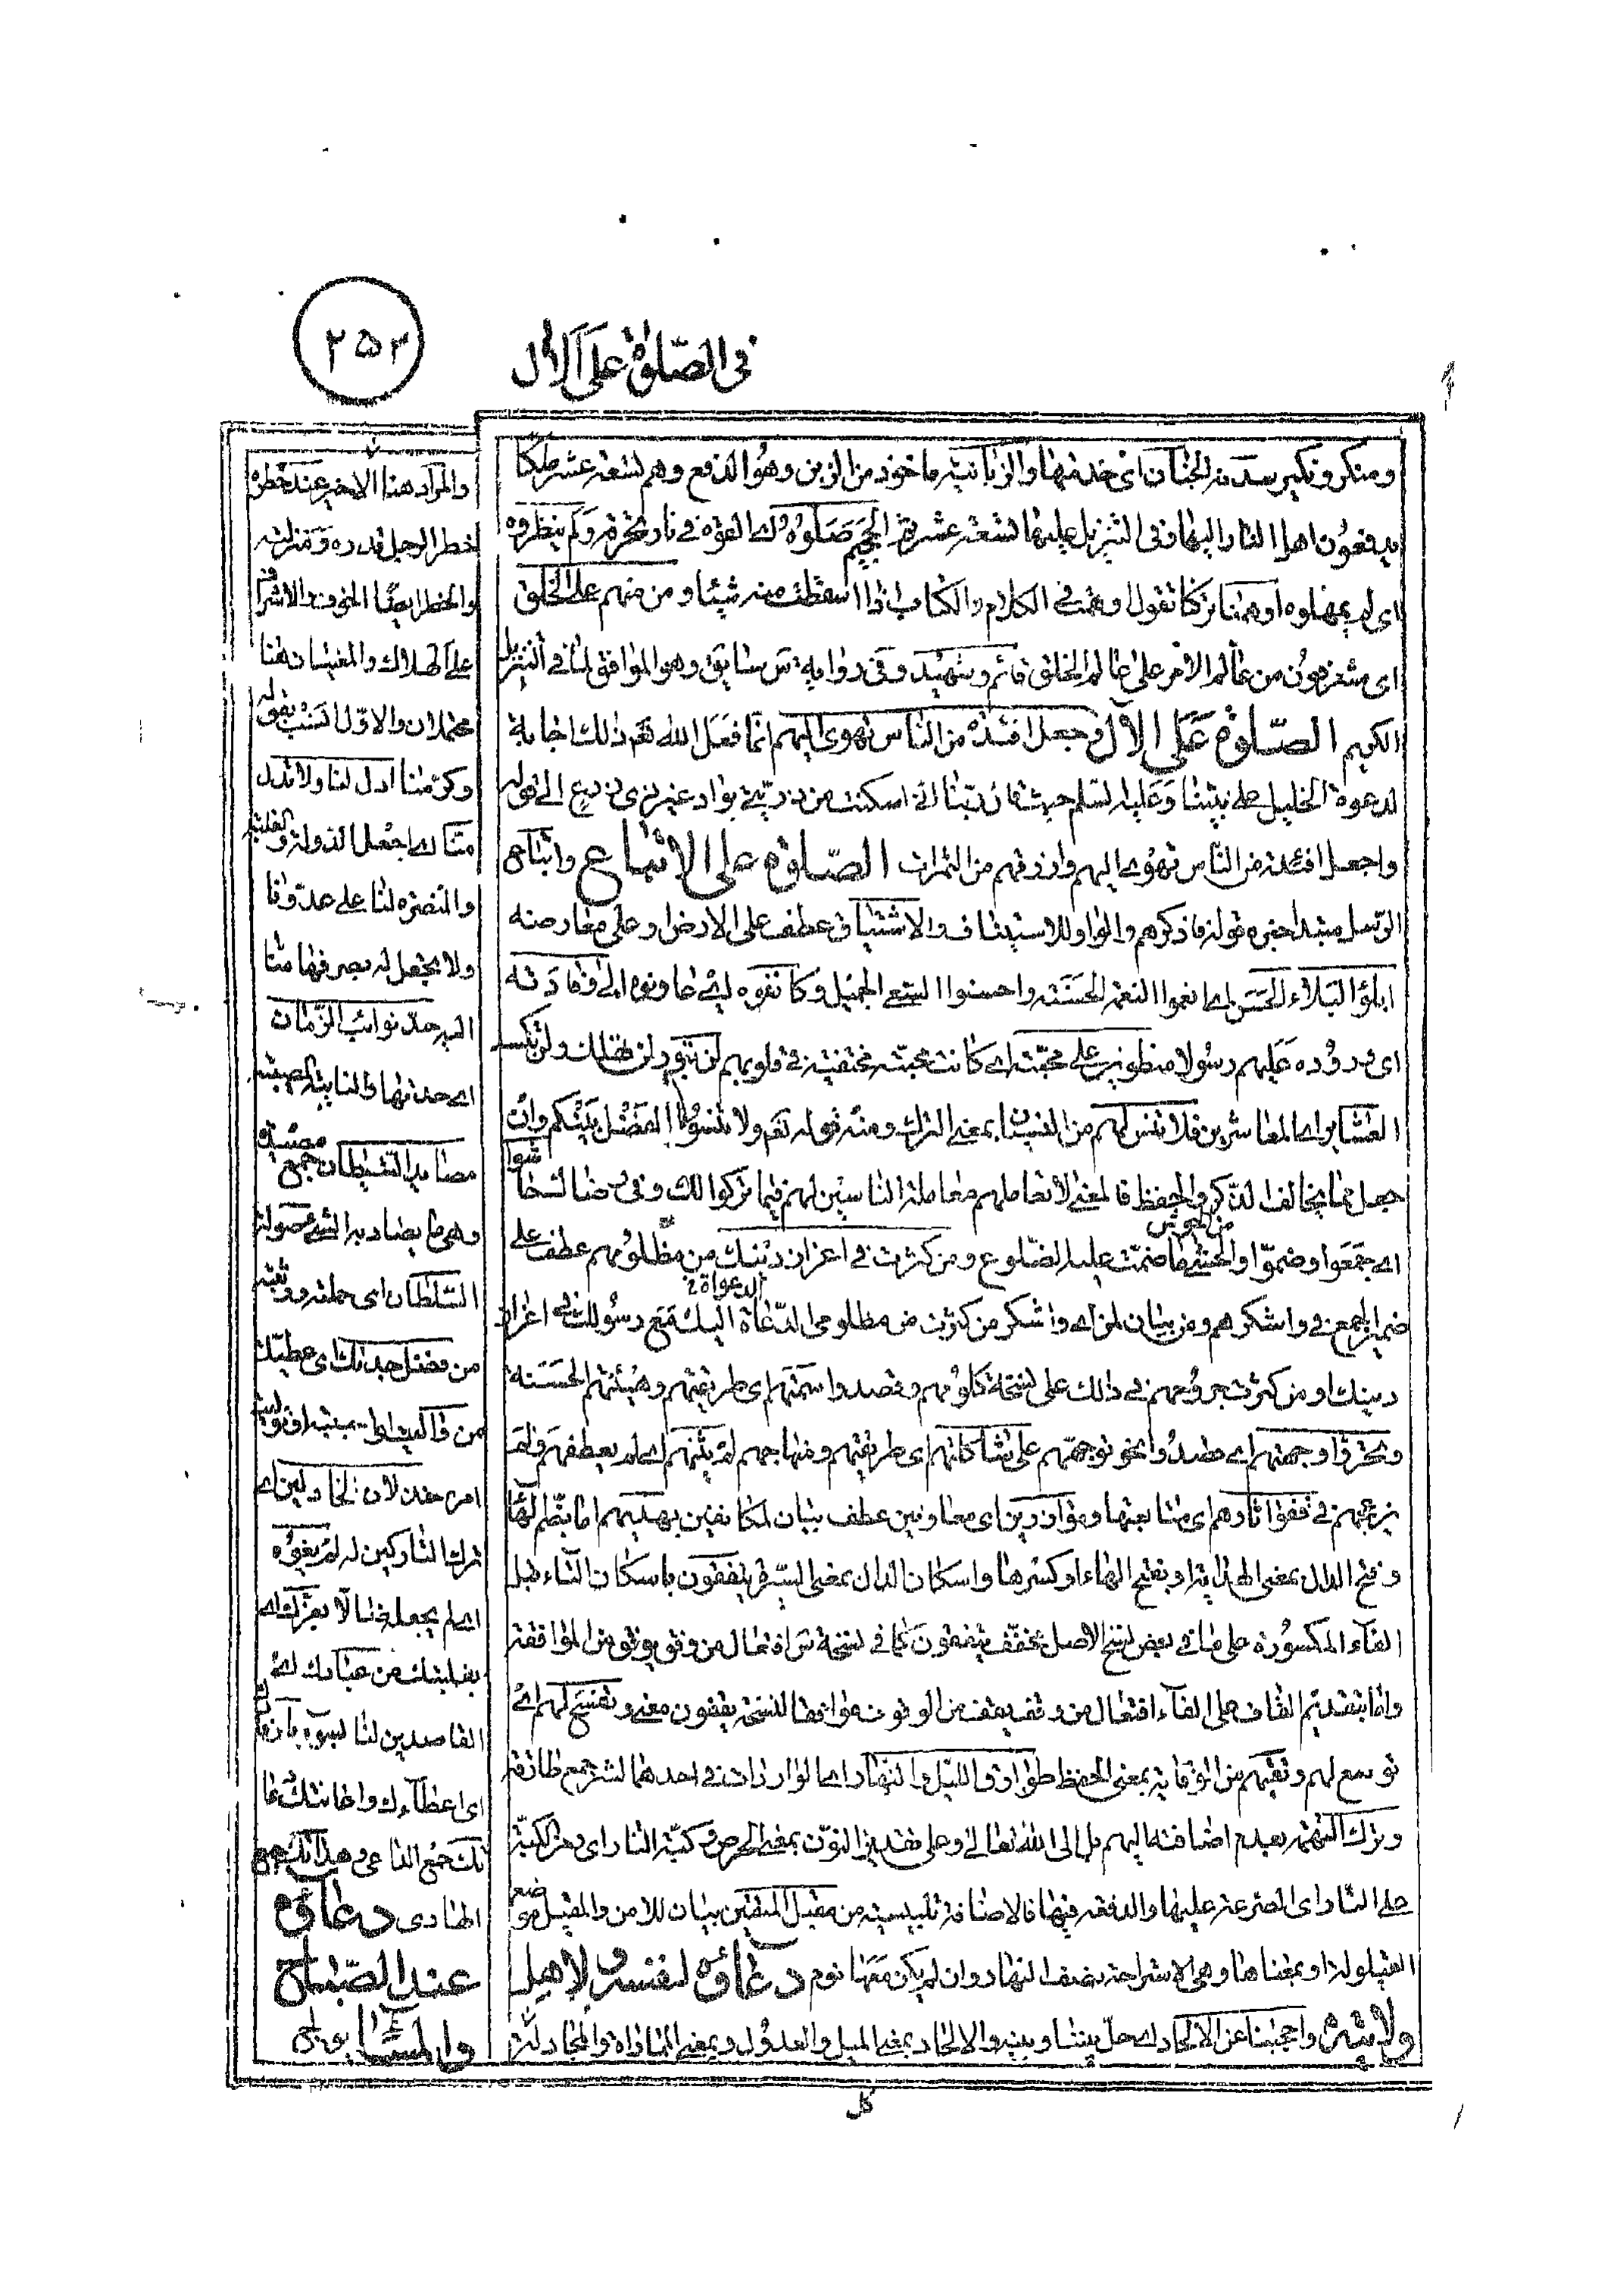 ٢٥٣
في الصّلوة على الآل
ومنكر ونكير سدنة الجنان اى خدمتها والزبانية ماخوذ من الزبن وهو الدفع وهم تسعة عشر ملكا
يدفعون اهل النار اليها وفى التنزيل عليها تسعة عشر ثم الجحيم صلوه اى القوه في نار محرقة ولم ينظروه
اى لم يمهلوه او همنا تركنا تقول وهمت في الكلام والكتاب اذا اسقطت منه شيئا ومن منهم على الخلق
اى مشرفون من عالم الامر على عالم الخلق قائم وشهيد وفى رواية س سايق وهو الموافق لما في التنزيل
الكريم الصّلوة على الآل وجعل افئدة من الناس تهوى اليهم انما فعل الله لهم ذلك اجابة
لدعوة الخليل على نبينا وعليه السلم حيث قال ربنا انى اسكنت من ذريتى بواد غير ذى زرع الى قوله
واجعل افئدة من الناس تهوى اليهم وارزقهم من الثمرات الصّلوة على الاتباع واتباع
الرسل مبتدا خبره قوله فاذكرهم والواو للاستيناف والاشتياق عطف على الارض او على معارضة
ابلوا البلاء الحسن اى انعموا النعمة الحسنة واحسنوا السعى الجميل وكانفوه اى عاونوه الى وفادته
اى وروده عليهم رسولا منطوين على محبته اى كانت محبته مختفية فى قلوبهم لن تبور لن تهلك ولن تكسد
العشاير اى المعاشرين فلا تنس لهم من النسيان بمعنى الترك ومنه قوله تعم ولا تنسوا الفضل بينكم وان
جعل مما يخالف الذكر والحفظ فالمعنى لا تعاملهم معاملة الناسين لهم فيما تركوا لك وفى رضا لك حاشوا
اى جمعوا وضموا والحشى ما ضمت عليه الضلوع ومن كثرت فى اعزاز دينك من مظلومهم عطف على
ضمير الجمع في واشكرهم ومن بيان لمن اى واشكر من كثرت من مظلومى الدعاة اليك مع رسولك في اعزاز
دينك او من كثرت جروحهم فى ذلك على نسخة كلومهم وقصدوا سمتهم اى طريقتهم وهيئتهم الحسنة
وتحروا وجهتهم اى قصدوا نحو توجههم على شاكلتهم اى طريقتهم ومنهاجهم لم يثنهم اى لم يعطفهم ولم
يرجعهم في قفو آثارهم اى متابعتها وموازرين اى معاونين عطف بيان لمكانفين بهديهم اما بضم الهاء
وفتح الدال بمعنى الهداية او بفتح الهاء او كسرها واسكان الدال بمعنى السيرة يتفقون باسكان التاء قبل
الفاء المكسورة على ما في بعض نسخ الاصل مخفف يتفقون كما في نسخة س افتعال من وفق يوفق من الموافقة
واما بتقديم القاف على الفاء افتعال من وقف يقف من الوقوف موافقا لنسخة يقفون معنى وتفسح لهم اى
توسع لهم وتقيهم من الوقاية بمعنى الحفظ طوارق الليل والنهار اى الواردات في احدهما لشر جمع طارقة
وترك التهمة بعدم اضافته اليهم بل الى الله تعالى وعلى تقدير النون بمعنى الحرص وكبة النار اى وهن الكبة
على النار اى الصرعة عليها والدفعة فيها فالاضافة تلبيسية من مقيل المتقين بيان للامن والمقيل موضع
القيلولة او بمعناها وهى الاستراحة نصف النهار وان لم يكن معها نوم دعاؤه لنفسه ولاهل
ولايته واحجبنا عن الالحاد اى حل بيننا وبينه والالحاد بمعنى الميل والعدول وبمعنى المماراة والمجادلة
والمراد هنا الاخير عند خطره
خطر الرجل قدره ومنزلته
والخطر ايضا الخوف والاشراف
على الهلاك والمعنيان هنا
محتملان والاول انسب بقوله
وكرمنا ادل لنا ولا تدل
منا اى اجعل الدولة والغلبة
والنصرة لنا على عدونا
ولا تجعل له يصرفها منا
اليه حد نوائب الزمان
اى حدتها والنايبة المصيبة
مصايد الشيطان جمع مصيدة
وهى ما يصاد به الشىء صولة
السلطان اى حملته ووثبته
من فضل جدتك اى عطيتك
ترك التاركين له لم يغوه
اى لم يجعله ضالا بعزك اى
بغلبتك من عبادك اى
القاصدين لنا لسوء بارفادك
اى اعطاءك واعانتك
جمع الداعى وهداتك جمع
الهادى دعاؤه
عند الصّباح
والمساء يولج
كل